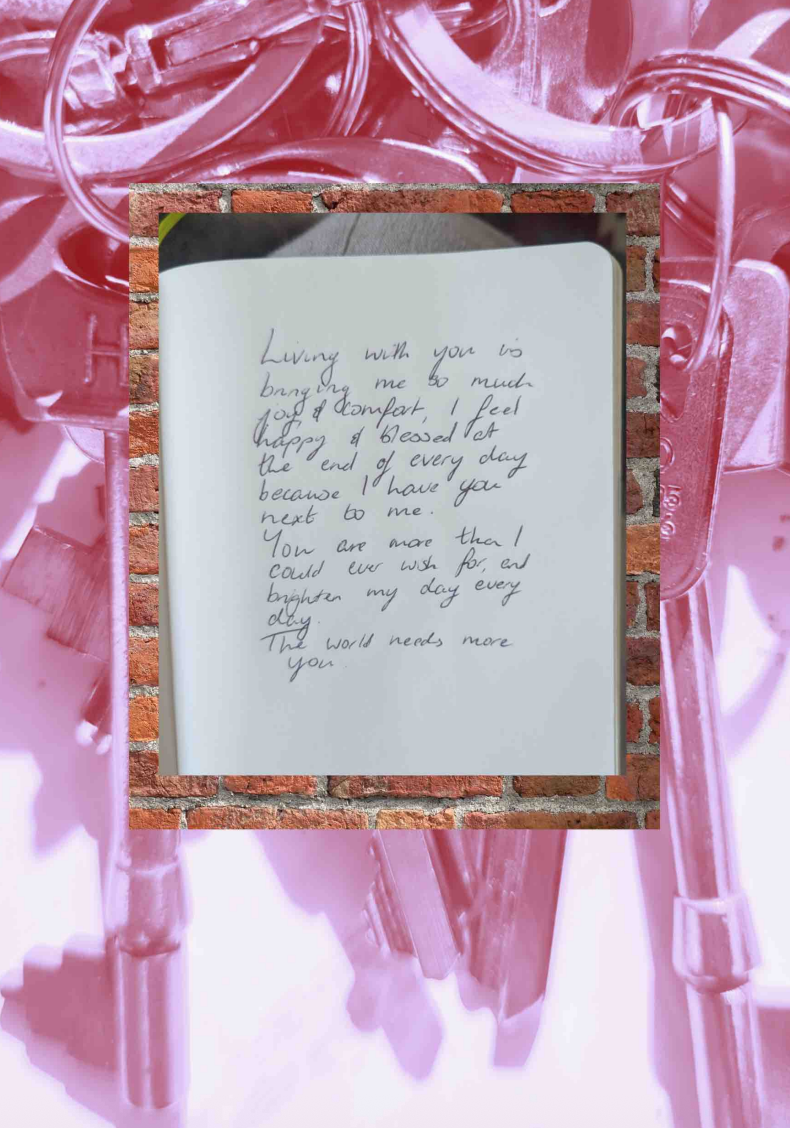 H
Living with you is
bringing me so much
joy, & comfort, I feel
happy & blessed at
the end of every day
because I have you
next to me.
You are more than I
could ever wish for, and
brighten my day every
day.
The world needs more
you.